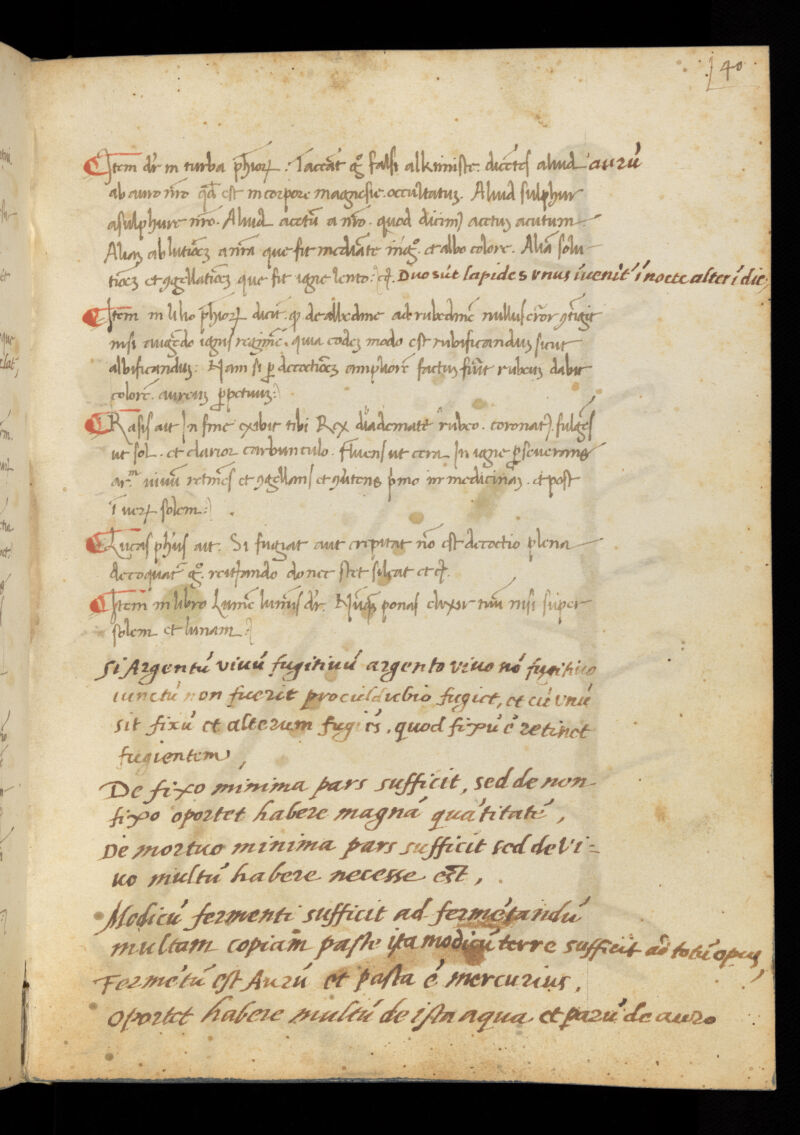 40
Item dr̄ in turba ph̄ior̄ . Taceāt g̊ falsi alkimiste . dicētes aliud aurū
ab auro nr̄o qd̄ est in corpore magnesie occultatum . Aliud sulphur
a sulphure nr̄o . Aliud acetū a nr̄o . quod dicim⁹ acetum acutum
Aliam ablutiōēm a nr̄a que fit mediāte et albo colore . Aliā solu
tiōēm et ꝯgellatiōēm que fit igne lento : Duo sūt lapides vnus īvenit̄ ī nocte alter ī die
Item in libro ph̄ior̄ dicit . qp̄ de albedine ad rubedinē nullus error ꝯtigit
nisi augēdo ignis regimē . quia eodem modo est rubificandum sicut
albificandum : Nam si per decoctiōēm ampliorē factus fūit rubeus dabit
colorē . aureum ꝑpetuum :
Rasis ait In fine exibit tibi Rex diademate rubeo . coronat⁹ . fulgēs
ut sol . et clarior carbunculo . fluens ut cera In igne ꝑseverans
ar.m vivū retinēs et ꝯgellans et ꝯūtens prīo in medicinam . et post
I verum solem :
Lucas ph̄us ait : Si fugiat aut crepitat nō est decoctio plena
decoquat̄ g̊ . reiterando donec stet sileat et c̄ .
Item in libro Lumē luminis dr̄ . Nūq̄ ponas elixir tuū nisi super
solem et lunam :
Si Argentū vivū fugitivū argento vivo nō fugitivo
iunctū non fuerit proculdubio fugiet, et cū vnū
sit fixū et alterum fugiēs, quod fixū ē retinet
fugientem,
De fixo minima pars sufficit, sed de non
fixo oportet habere magnā quātitatē,
De mortuo minima pars sufficit sed de vi-
vo multū habere necesse est,
Modicū fermenti sufficit ad fermētandū
multam copiam paste ita modicū terre sufficit ad totū opus,
Fermētū est Aurū et pasta ē mercurius,
oportet habere multū de ista aqua et parū de auro